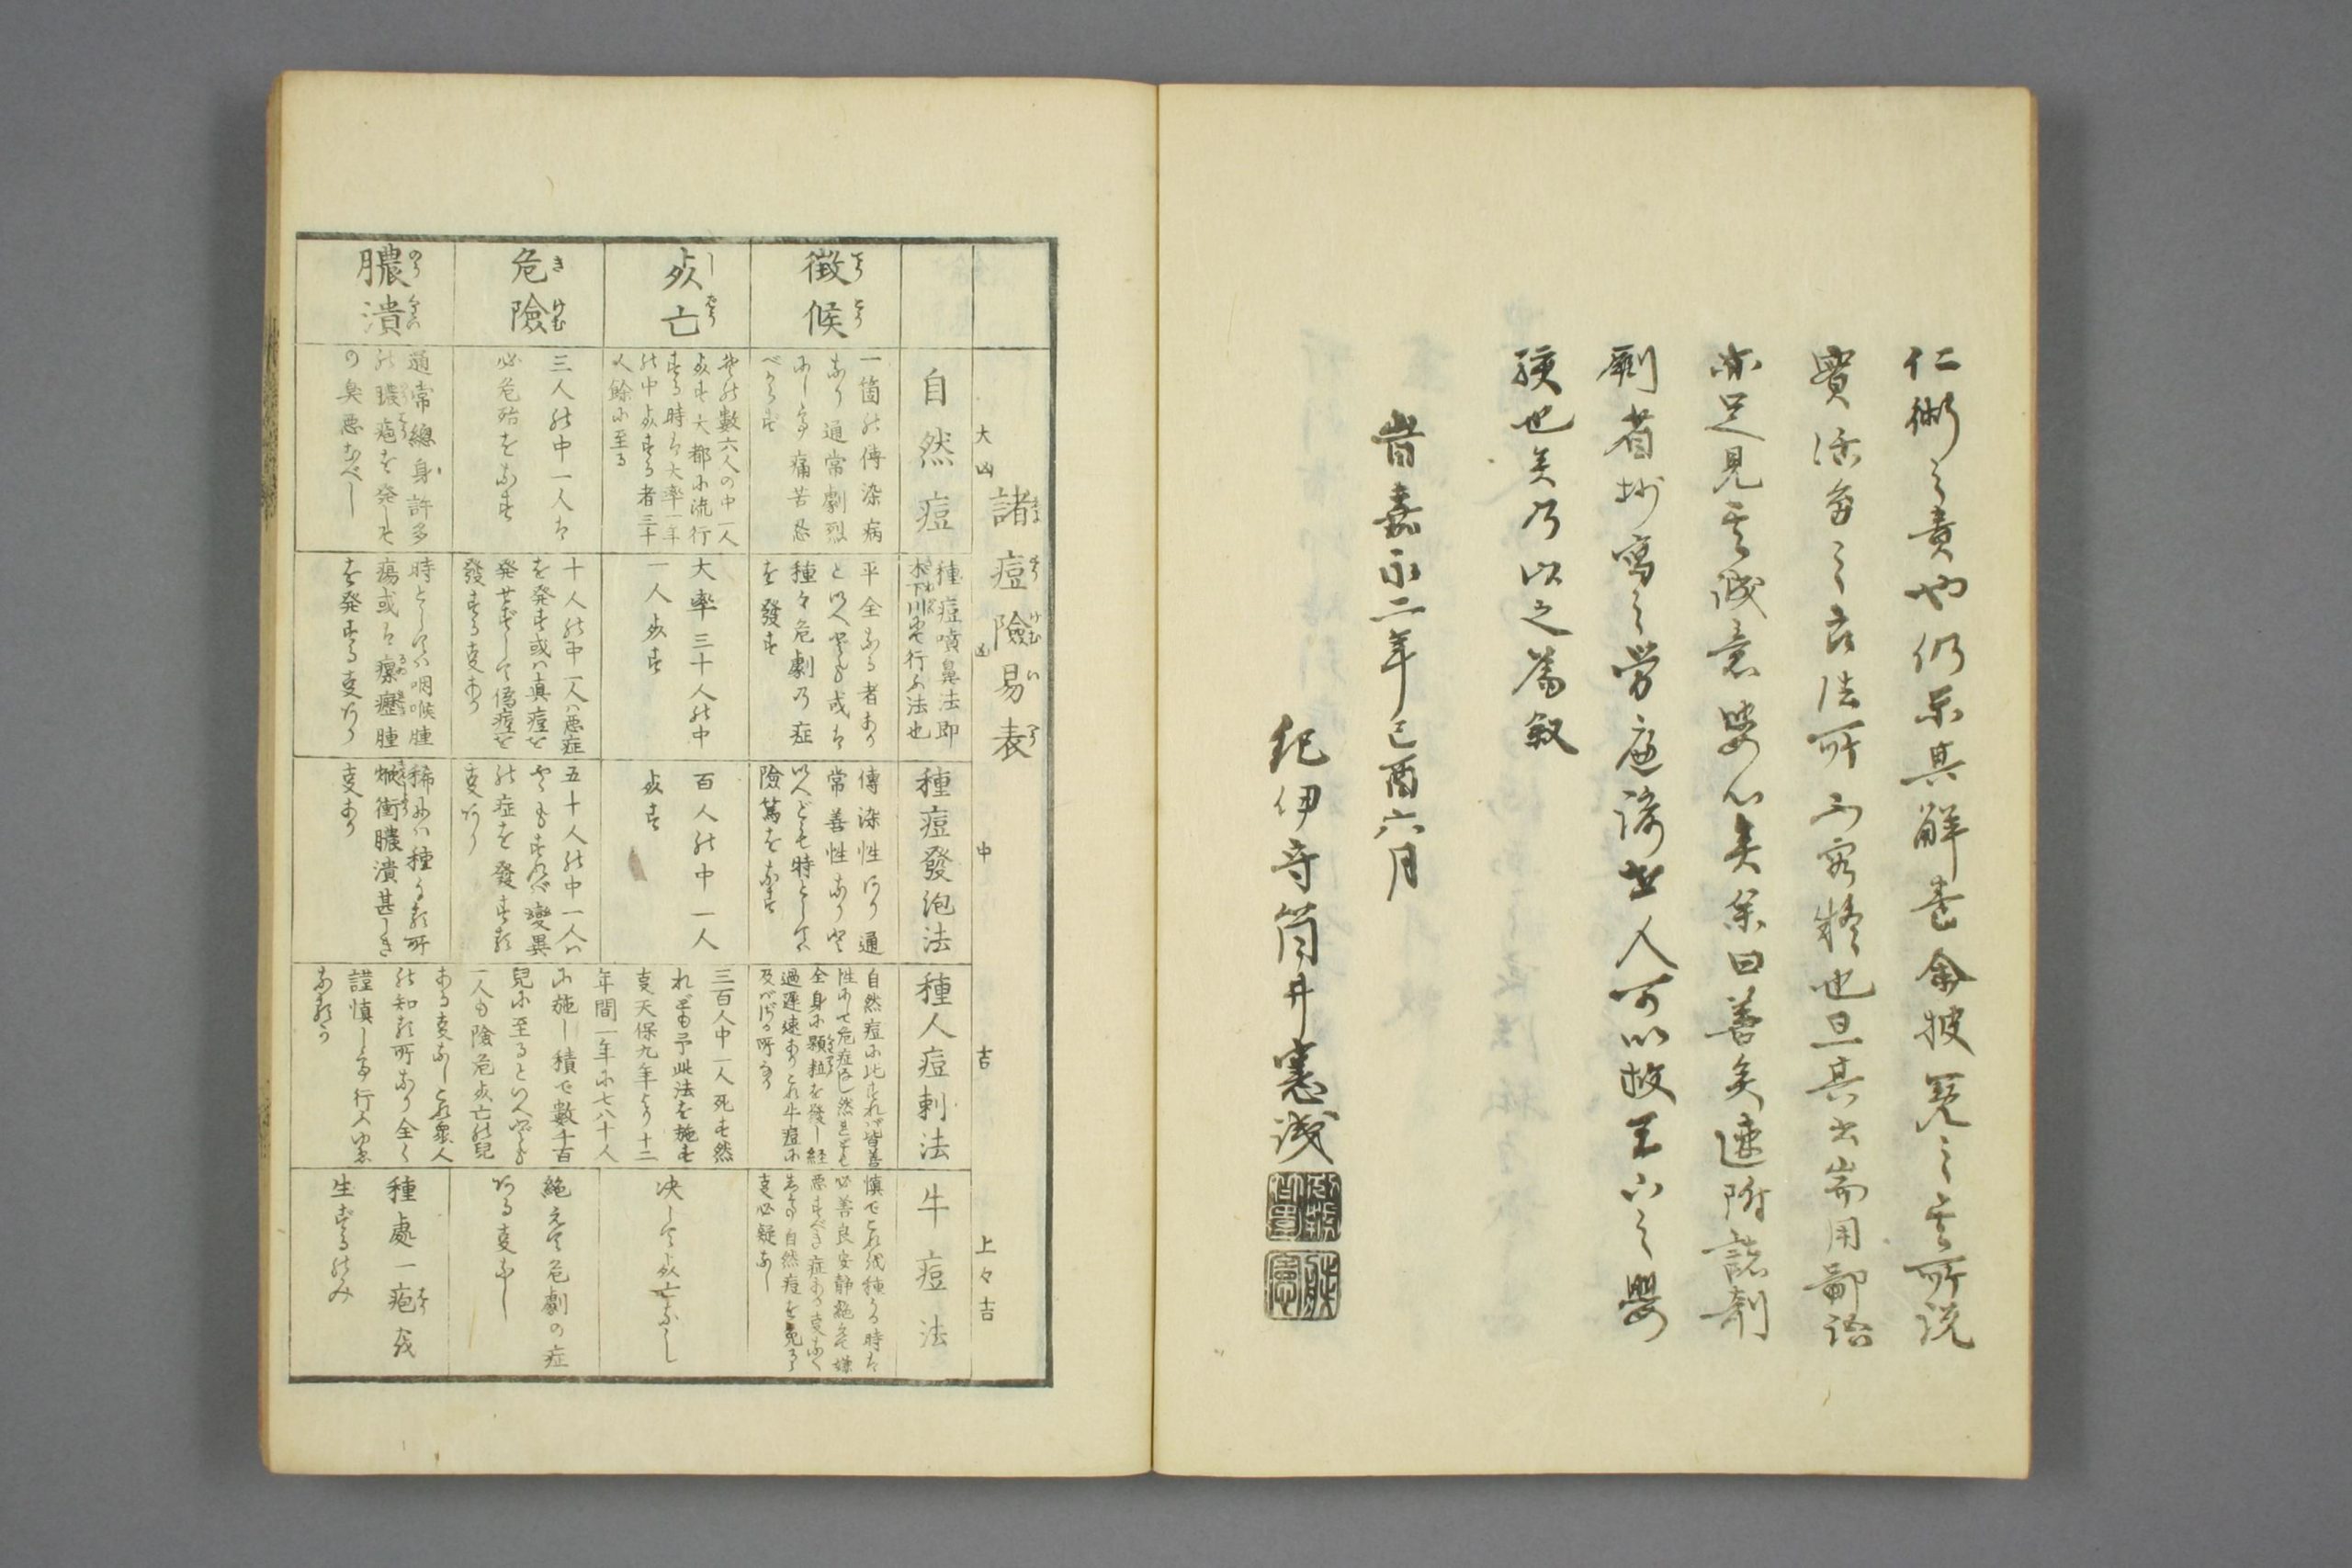 仁術之責也仍示其解書余披覧之其所説
實活嬰之良法所不容疑也且其出崇用鄙語
亦足見其誠意婆心矣余曰善矣速附諸剞
劂省抄寫之勞庶濟世人可以救天下之嬰
孩也矣乃以之爲叙
旹嘉永二年己酉六月
紀伊守筒井憲誠
諸痘險易表
大凶
凶
中
吉
上々吉
自然痘
種痘噴鼻法即
木下川ニて行ふ法也
種痘發泡法
種人痘刺法
牛痘法
徴候
一箇の傳染病
なり通常劇烈
にして痛苦忍
べからず
平全なる者あり
といへども或は
種々危劇の症
を發す
傳染性なり通
常善性なり
いへども時として
險篤をなす
自然痘に比すれバ皆善
性にて危症なし然ども
全身に顆粒を發し経
過遅速ありこれ牛痘に
及バざる所なり
慎でこれを種る時は
必善良安静絶て嫌
悪すべき症ある事なく
自然痘を免るゝ
事必疑なし
死亡
其数六人の中一人
死す大都に流行
する時は大率一年
の中死する者三千
人餘に至る
大率三十人の中
一人死す
百人の中一人
死す
三百人中一人死す然
れども予此法を施す
事天保九年より十二
年間一年に七八十人
に施し積で數千百
兒に至るといへども
一人も險危死亡の兒
ある事なしこれ衆人
の知る所なり全く
謹慎して行ふゆゑ
なるべし
決して死亡なし
危險
三人の中一人は
必危殆をなす
十人の中一人ハ悪症
を発す或ハ真痘を
発せずして偽痘を
發する事あり
五十人の中一人ハ
變異
の症を發する
事あり
絶えて危劇の症
ある事なし
膿潰
通常總身許多
の膿疱を発して
の臭悪なべし
時としてハ咽喉腫
瘍或は瘰癧腫
を発する事あり
稀にハ種る所
焮衝膿潰甚しき
事あり
種處一疱を
生ずるのみ